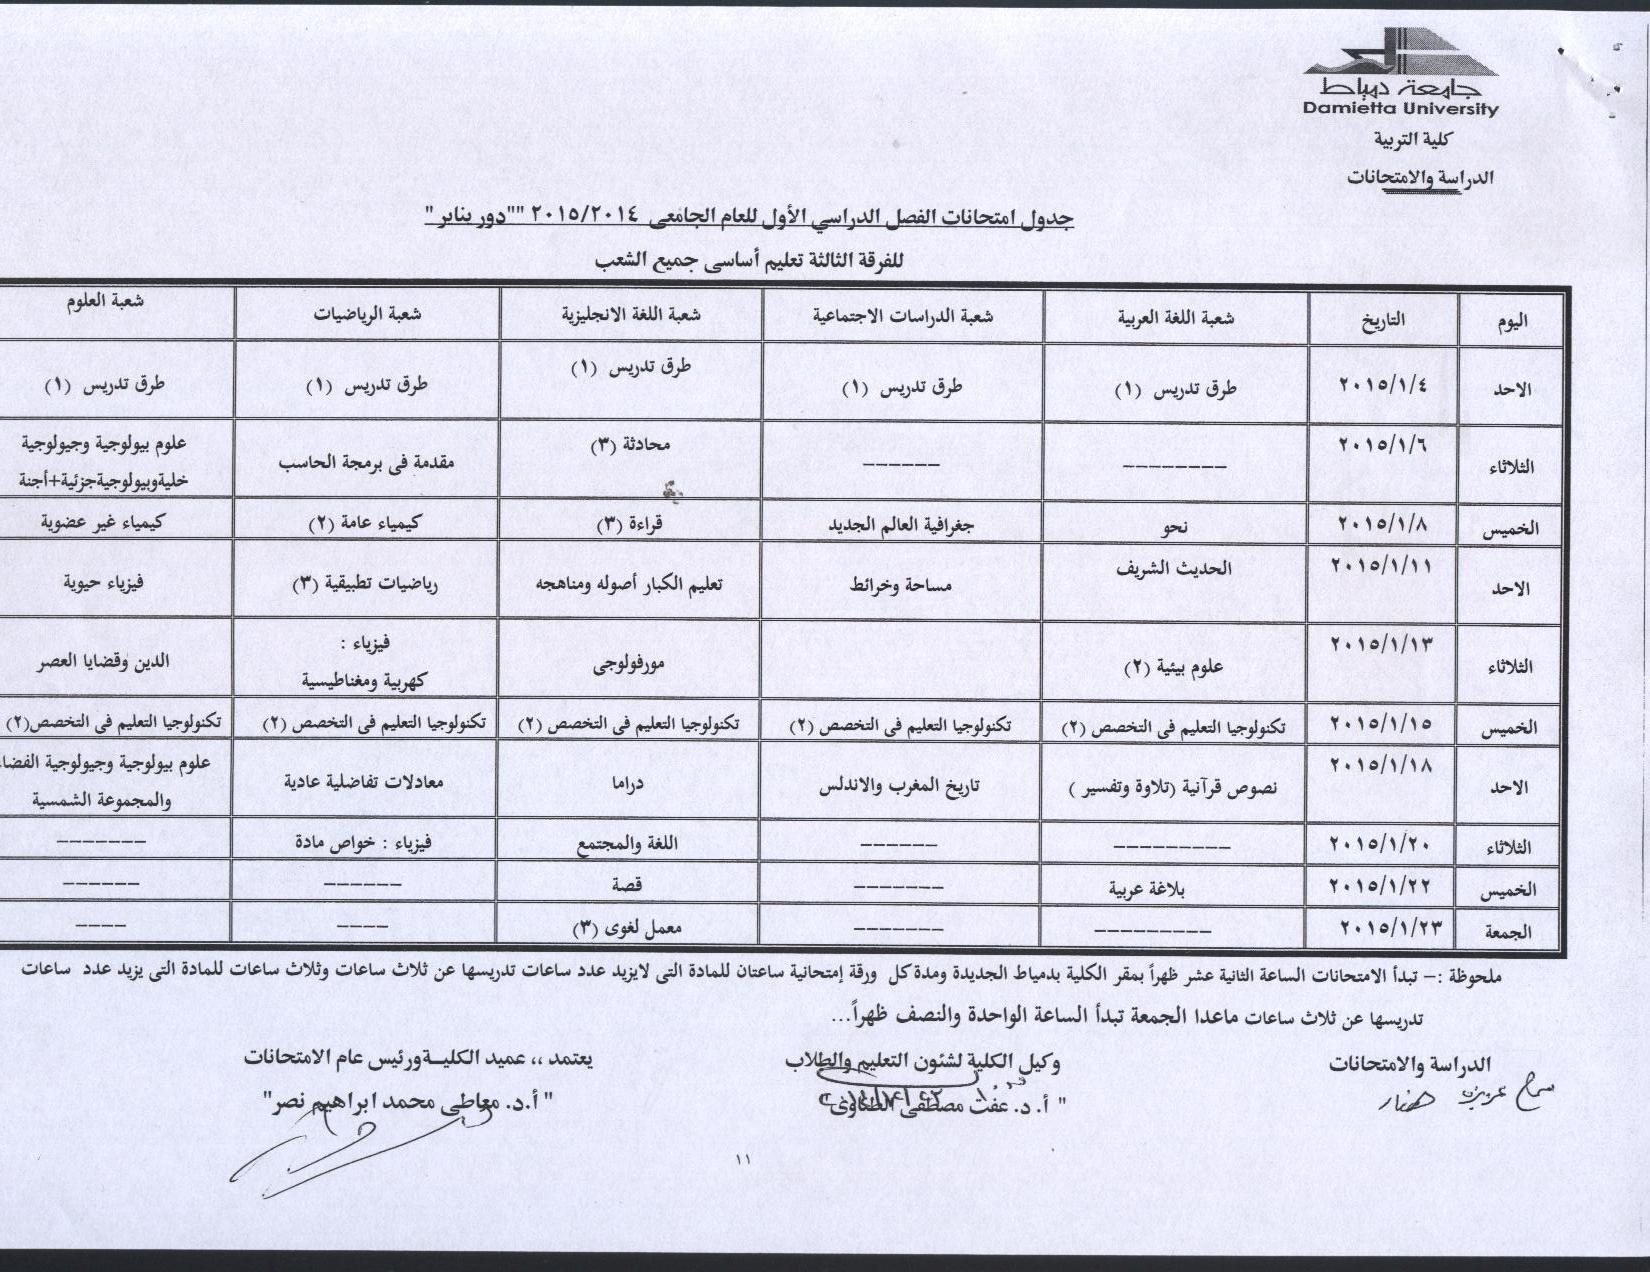 جامعة دمياط
Damietta University
كلية التربية
الدراسة والامتحانات
جدول امتحانات الفصل الدراسي الأول للعام الجامعى ٢٠١٥/٢٠١٤ ""دور يناير"
للفرقة الثالثة تعليم أساسى جميع الشعب
اليوم التاريخ شعبة اللغة العربية شعبة الدراسات الاجتماعية شعبة اللغة الانجليزية شعبة الرياضيات شعبة العلوم
الاحد ٢٠١٥/١/٤ طرق تدريس (١) طرق تدريس (١) طرق تدريس (١) طرق تدريس (١) طرق تدريس (١)
الثلاثاء ٢٠١٥/١/٦ -------- ------ محادثة (٣) مقدمة فى برمجة الحاسب علوم بيولوجية وجيولوجية
خليةوبيولوجيةجزئية+أجنة
الخميس ٢٠١٥/١/٨ نحو جغرافية العالم الجديد قراءة (٣) كيمياء عامة (٢) كيمياء غير عضوية
الاحد ٢٠١٥/١/١١ الحديث الشريف مساحة وخرائط تعليم الكبار أصوله ومناهجه رياضيات تطبيقية (٣) فيزياء حيوية
الثلاثاء ٢٠١٥/١/١٣ علوم بيئية (٢) مورفولوجى فيزياء : الدين وقضايا العصر
كهربية ومغناطيسية
الخميس ٢٠١٥/١/١٥ تكنولوجيا التعليم فى التخصص (٢) تكنولوجيا التعليم فى التخصص (٢) تكنولوجيا التعليم فى التخصص (٢) تكنولوجيا التعليم فى التخصص (٢) تكنولوجيا التعليم فى التخصص(٢)
الاحد ٢٠١٥/١/١٨ نصوص قرآنية (تلاوة وتفسير ) تاريخ المغرب والاندلس دراما معادلات تفاضلية عادية علوم بيولوجية وجيولوجية الفضا
والمجموعة الشمسية
الثلاثاء ٢٠١٥/١/٢٠ --------- ------ اللغة والمجتمع فيزياء : خواص مادة -------
الخميس ٢٠١٥/١/٢٢ بلاغة عربية ------- قصة ------ ------
الجمعة ٢٠١٥/١/٢٣ --------- ------- معمل لغوى (٣) ---- ----
ملحوظة :– تبدأ الامتحانات الساعة الثانية عشر ظهراً بمقر الكلية بدمياط الجديدة ومدة كل ورقة إمتحانية ساعتان للمادة التى لايزيد عدد ساعات تدريسها عن ثلاث ساعات وثلاث ساعات للمادة التى يزيد عدد ساعات
تدريسها عن ثلاث ساعات ماعدا الجمعة تبدأ الساعة الواحدة والنصف ظهراً...
الدراسة والامتحانات وكيل الكلية لشئون التعليم والطلاب يعتمد ،، عميد الكليـةورئيس عام الامتحانات
" أ. د. عفت مصطفى الطناوى" " أ.د. معاطى محمد ابراهيم نصر"
١١